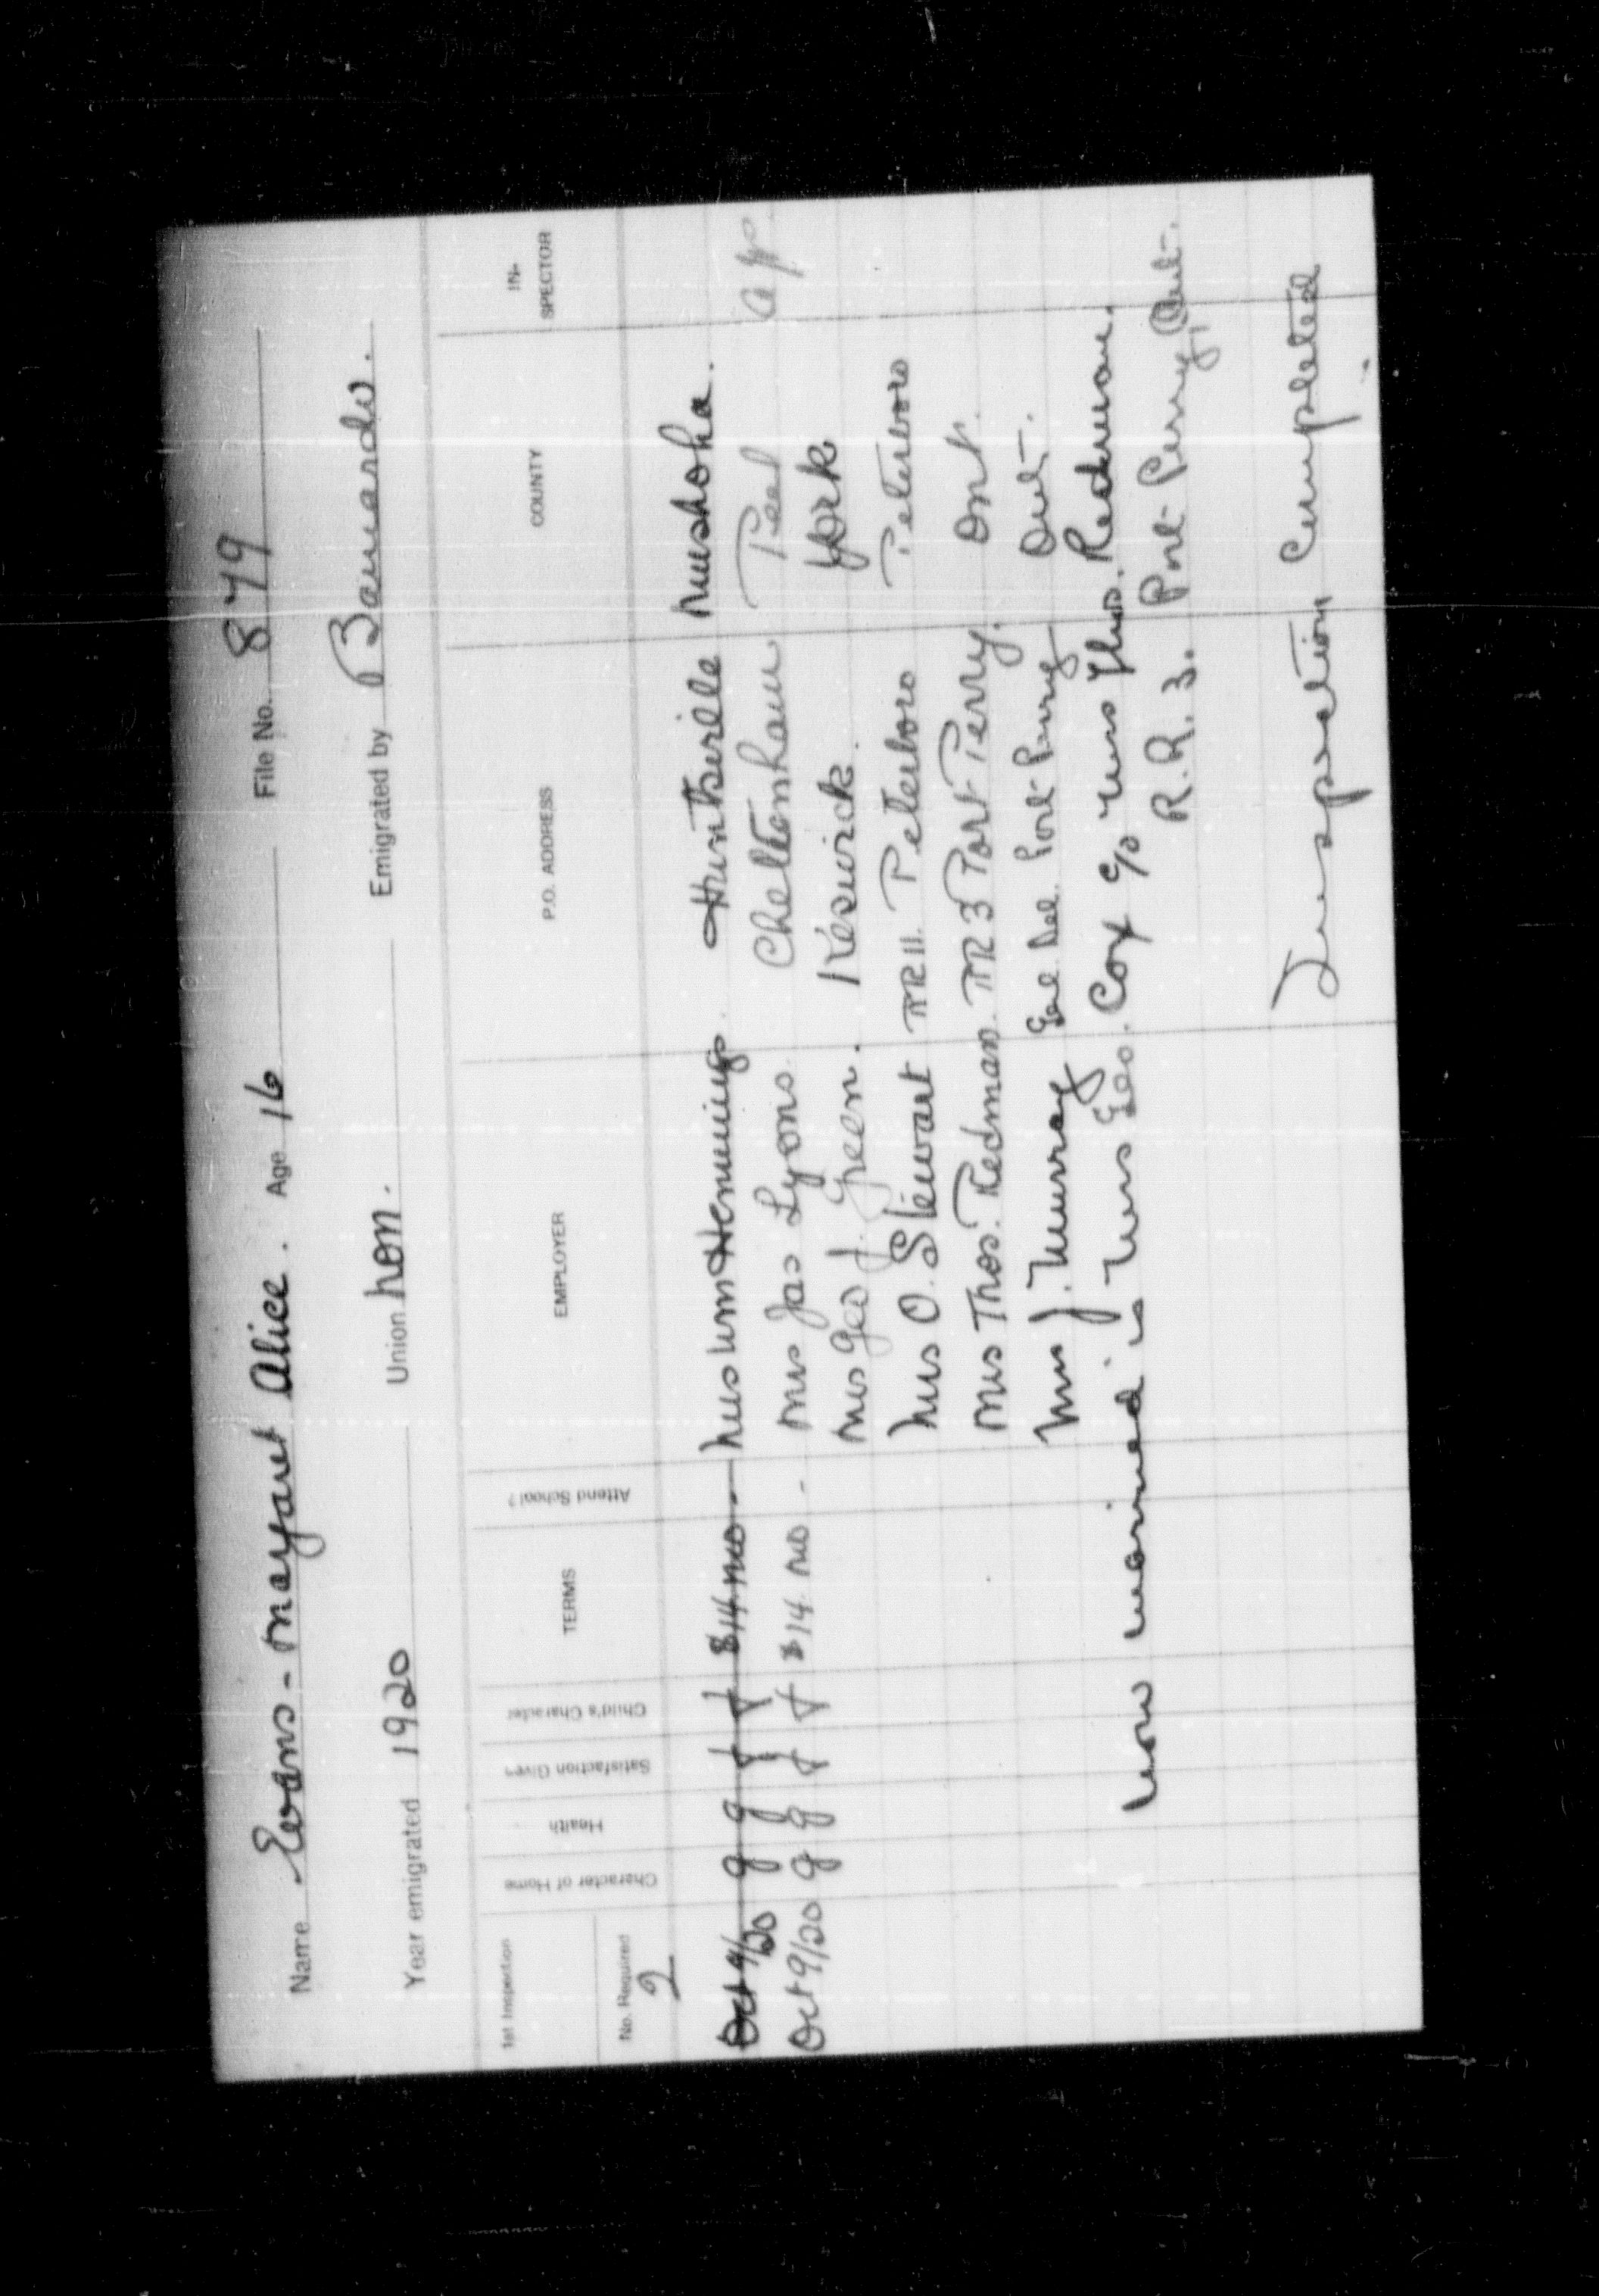 Name Evans - Margaret Alice. Age 16 File No. 879
Year emigrated 1920 Union non. Emigrated by Barnardo.
1st Inspection
No. Required
2
Character of Home
Health
Satisfaction Given
Child's Character
TERMS
Attend School?
EMPLOYER
P.O. ADDRESS
COUNTY
IN-
SPECTOR
Oct 9/20 g g f f $14. mo - Mrs Wm Hemmings. Huntsville Muskoka.
Oct 9/20 g g f f $14 mo - Mrs Jas Lyons. Cheltenham Peel
Mrs Geo J. Green. Keswick. York
Mrs O. Stewart RR11. Peterboro Peterboro
Mrs Thos. Redman. RR3 Port Perry. Ont.
Mrs J. Murray Gen. Del. Port Perry Ont.
Now married is Mrs Geo. Cox c/o Mrs Thos. Redman.
R.R. 3. Port Perry, Ont.
Inspection Completed